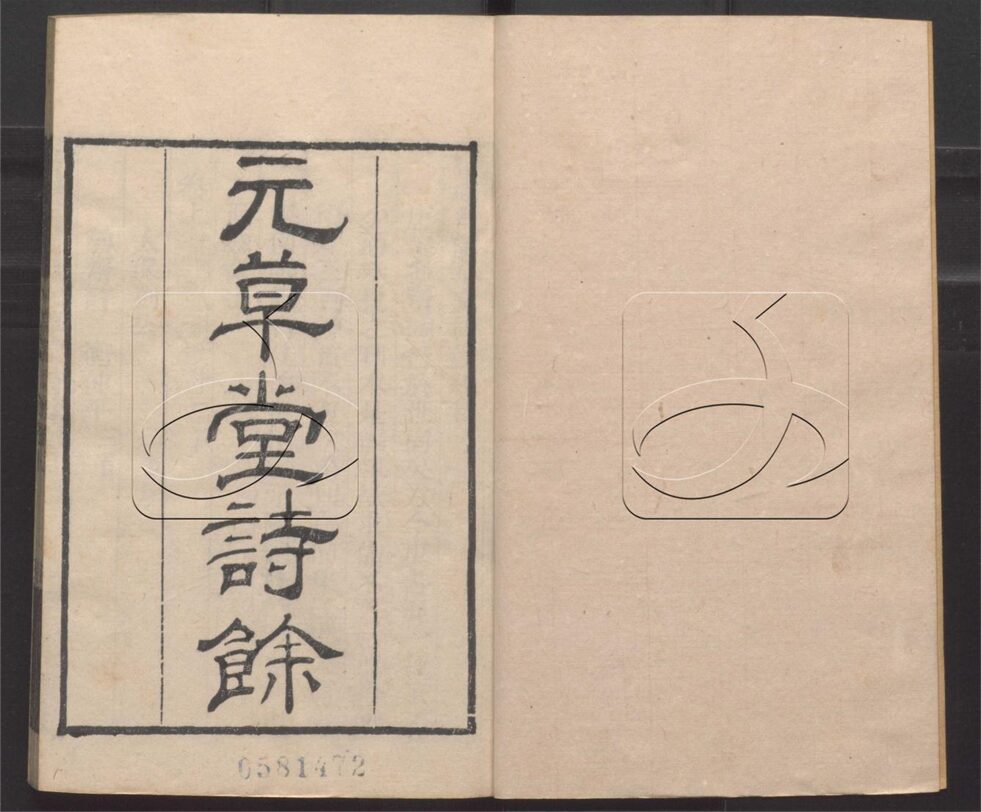 元草堂詩餘
0581472